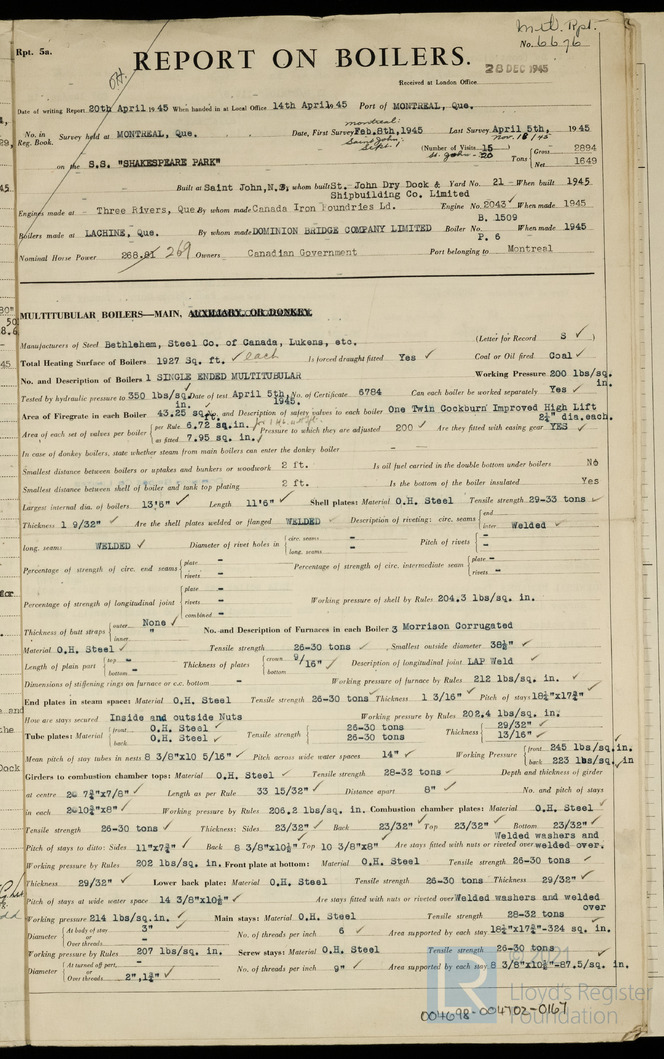 M.W. Rpt.
No. 6676
Rpt. 5a.
REPORT ON BOILERS.
28 DEC 1945
Received at London Office
Date of writing Report 20th April 1945 When handed in at Local Office 14th April 1945 Port of MONTREAL, Que.
No. in Reg. Book. Survey held at MONTREAL, Que. Date, First Survey Feb.8th,1945 Last Survey April 5th, 1945
montreal:
Saint John; Sept. 1 Nov. 18/45
(Number of Visits 15 St. John - 20
on the S.S. "SHAKESPEARE PARK" Tons { Gross 2894 Net 1649
Built at Saint John, N.B. By whom built St. John Dry Dock & Shipbuilding Co. Limited Yard No. 21 When built 1945
Engines made at Three Rivers, Que By whom made Canada Iron Foundries Ld. Engine No. 2043 When made 1945
Boilers made at LACHINE, Que. By whom made DOMINION BRIDGE COMPANY LIMITED Boiler No. B. 1509 P. 6 When made 1945
Nominal Horse Power 268.81 269 Owners Canadian Government Port belonging to Montreal
MULTITUBULAR BOILERS—MAIN, AUXILIARY, OR DONKEY.
Manufacturers of Steel Bethlehem, Steel Co. of Canada, Lukens, etc. (Letter for Record S )
Total Heating Surface of Boilers 1927 Sq. ft. each Is forced draught fitted Yes Coal or Oil fired Coal
No. and Description of Boilers 1 SINGLE ENDED MULTITUBULAR Working Pressure 200 lbs/sq. in.
Tested by hydraulic pressure to 350 lbs/sq. in. Date of test April 5th, 1945. No. of Certificate 6784 Can each boiler be worked separately Yes
Area of Firegrate in each Boiler 43.25 sq. ft. No. and Description of safety valves to each boiler One Twin Cockburn Improved High Lift 2¼" dia.each.
Area of each set of valves per boiler { per Rule 6.72 sq.in. as fitted 7.95 sq.in. Pressure to which they are adjusted 200 Are they fitted with easing gear YES
In case of donkey boilers, state whether steam from main boilers can enter the donkey boiler -
Smallest distance between boilers or uptakes and bunkers or woodwork 2 ft. Is oil fuel carried in the double bottom under boilers No
Smallest distance between shell of boiler and tank top plating 2 ft. Is the bottom of the boiler insulated Yes
Largest internal dia. of boilers 13'6" Length 11'6" Shell plates: Material O.H. Steel Tensile strength 29-33 tons
Thickness 1 9/32" Are the shell plates welded or flanged WELDED Description of riveting: circ. seams { end inter Welded
long. seams WELDED Diameter of rivet holes in { circ. seams - long. seams - Pitch of rivets { - -
Percentage of strength of circ. end seams { plate - rivets - Percentage of strength of circ. intermediate seam { plate - rivets -
Percentage of strength of longitudinal joint { plate - rivets - combined - Working pressure of shell by Rules 204.3 lbs/sq. in.
Thickness of butt straps { outer None inner " No. and Description of Furnaces in each Boiler 3 Morrison Corrugated
Material O.H. Steel Tensile strength 26-30 tons Smallest outside diameter 38½"
Length of plain part { top - bottom - Thickness of plates { crown bottom 9/16" Description of longitudinal joint LAP Weld
Dimensions of stiffening rings on furnace or c.c. bottom - Working pressure of furnace by Rules 212 lbs/sq. in.
End plates in steam space: Material O.H. Steel Tensile strength 26-30 tons Thickness 1 3/16" Pitch of stays 18¼"x17¾"
How are stays secured Inside and outside Nuts Working pressure by Rules 202.4 lbs/sq. in.
Tube plates: Material { front O.H. Steel back O.H. Steel Tensile strength { 26-30 tons 26-30 tons Thickness { 29/32" 13/16"
Mean pitch of stay tubes in nests 8 3/8"x10 5/16" Pitch across wide water spaces 14" Working Pressure { front 245 lbs/sq.in back 223 lbs/sq.in
Girders to combustion chamber tops: Material O.H. Steel Tensile strength 28-32 tons Depth and thickness of girder
at centre 2@ 7¾"x7/8" Length as per Rule 33 15/32" Distance apart 8" No. and pitch of stays
in each 2@10¾"x8" Working pressure by Rules 206.2 lbs/sq. in. Combustion chamber plates: Material O.H. Steel
Tensile strength 26-30 tons Thickness: Sides 23/32" Back 23/32" Top 23/32" Bottom 23/32"
Pitch of stays to ditto: Sides 11"x7¾" Back 8 3/8"x10½" Top 10 3/8"x8" Are stays fitted with nuts or riveted over Welded washers and welded over.
Working pressure by Rules 202 lbs/sq. in. Front plate at bottom: Material O.H. Steel Tensile strength 26-30 tons
Thickness 29/32" Lower back plate: Material O.H. Steel Tensile strength 26-30 tons Thickness 29/32"
Pitch of stays at wide water space 14 3/8"x10½" Are stays fitted with nuts or riveted over Welded washers and welded over
Working pressure 214 lbs/sq.in. Main stays: Material O.H. Steel Tensile strength 28-32 tons
Diameter { At body of stay 3" or Over threads - No. of threads per inch 6 Area supported by each stay 18¼"x17¾"-324 sq. in.
Working pressure by Rules 207 lbs/sq. in. Screw stays: Material O.H. Steel Tensile strength 26-30 tons
Diameter { At turned off part, - or Over threads 2",1¾" No. of threads per inch 9" Area supported by each stay 8 3/8"x10½"-87.5/sq. in.
LR
Lloyd's Register
Foundation
004698-004702-0167